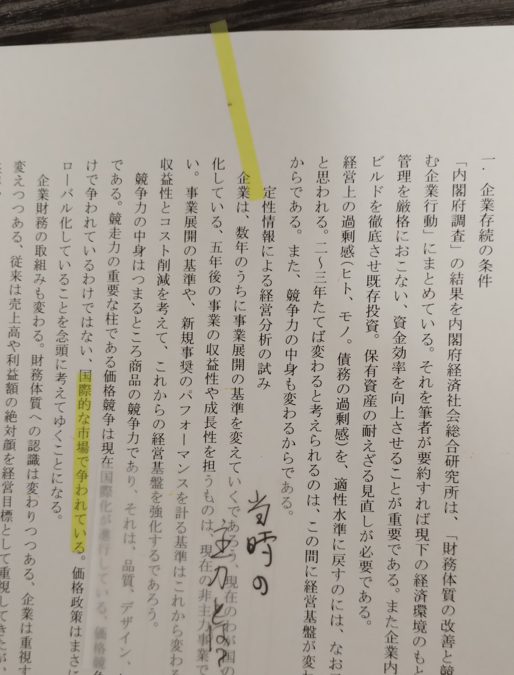 一．企業存続の条件
「内閣府調査」の結果を内閣府経済社会総合研究所は、「財務体質の改善と競
む企業行動」にまとめている。それを筆者が要約すれば現下の経済環境のもと
管理を厳格におこない、資金効率を向上させることが重要である。また企業内
ビルドを徹底させ既存投資。保有資産の耐えざる見直しが必要である。
経営上の過剰感（ヒト、モノ。債務の過剰感）を、適性水準に戻すのには、なお二
と思われる。二〜三年たてば変わると考えられるのは、この間に経営基盤が変わ
からである。また、競争力の中身も変わるからである。
定性情報による経営分析の試み
企業は、数年のうちに事業展開の基準を変えていくであろう、現在のわが国の
化している、五年後の事業の収益性や成長性を担うものは、現在の非主力事業で
い。事業展開の基準や、新規事奨のパフォーマンスを計る基準はこれから変わる
収益性とコスト削減を考えて、これからの経営基盤を強化するであろう。
競争力の中身はつまるところ商品の競争力であり、それは、品質、デザイン、
である。競走力の重要な柱である価格競争は現在国際化が進行している。価格競争
けで争われているわけではない、国際的な市場で争われている。価格政策はまさに
ローバル化していることを念頭に考えてゆくことになる。
企業財務の取組みも変わる。財務体質への認識は変わりつつある、企業は重視す
変えつつある、従来は売上高や利益額の絶対顔を経営目標として重視してきたが、
当時の
主力と